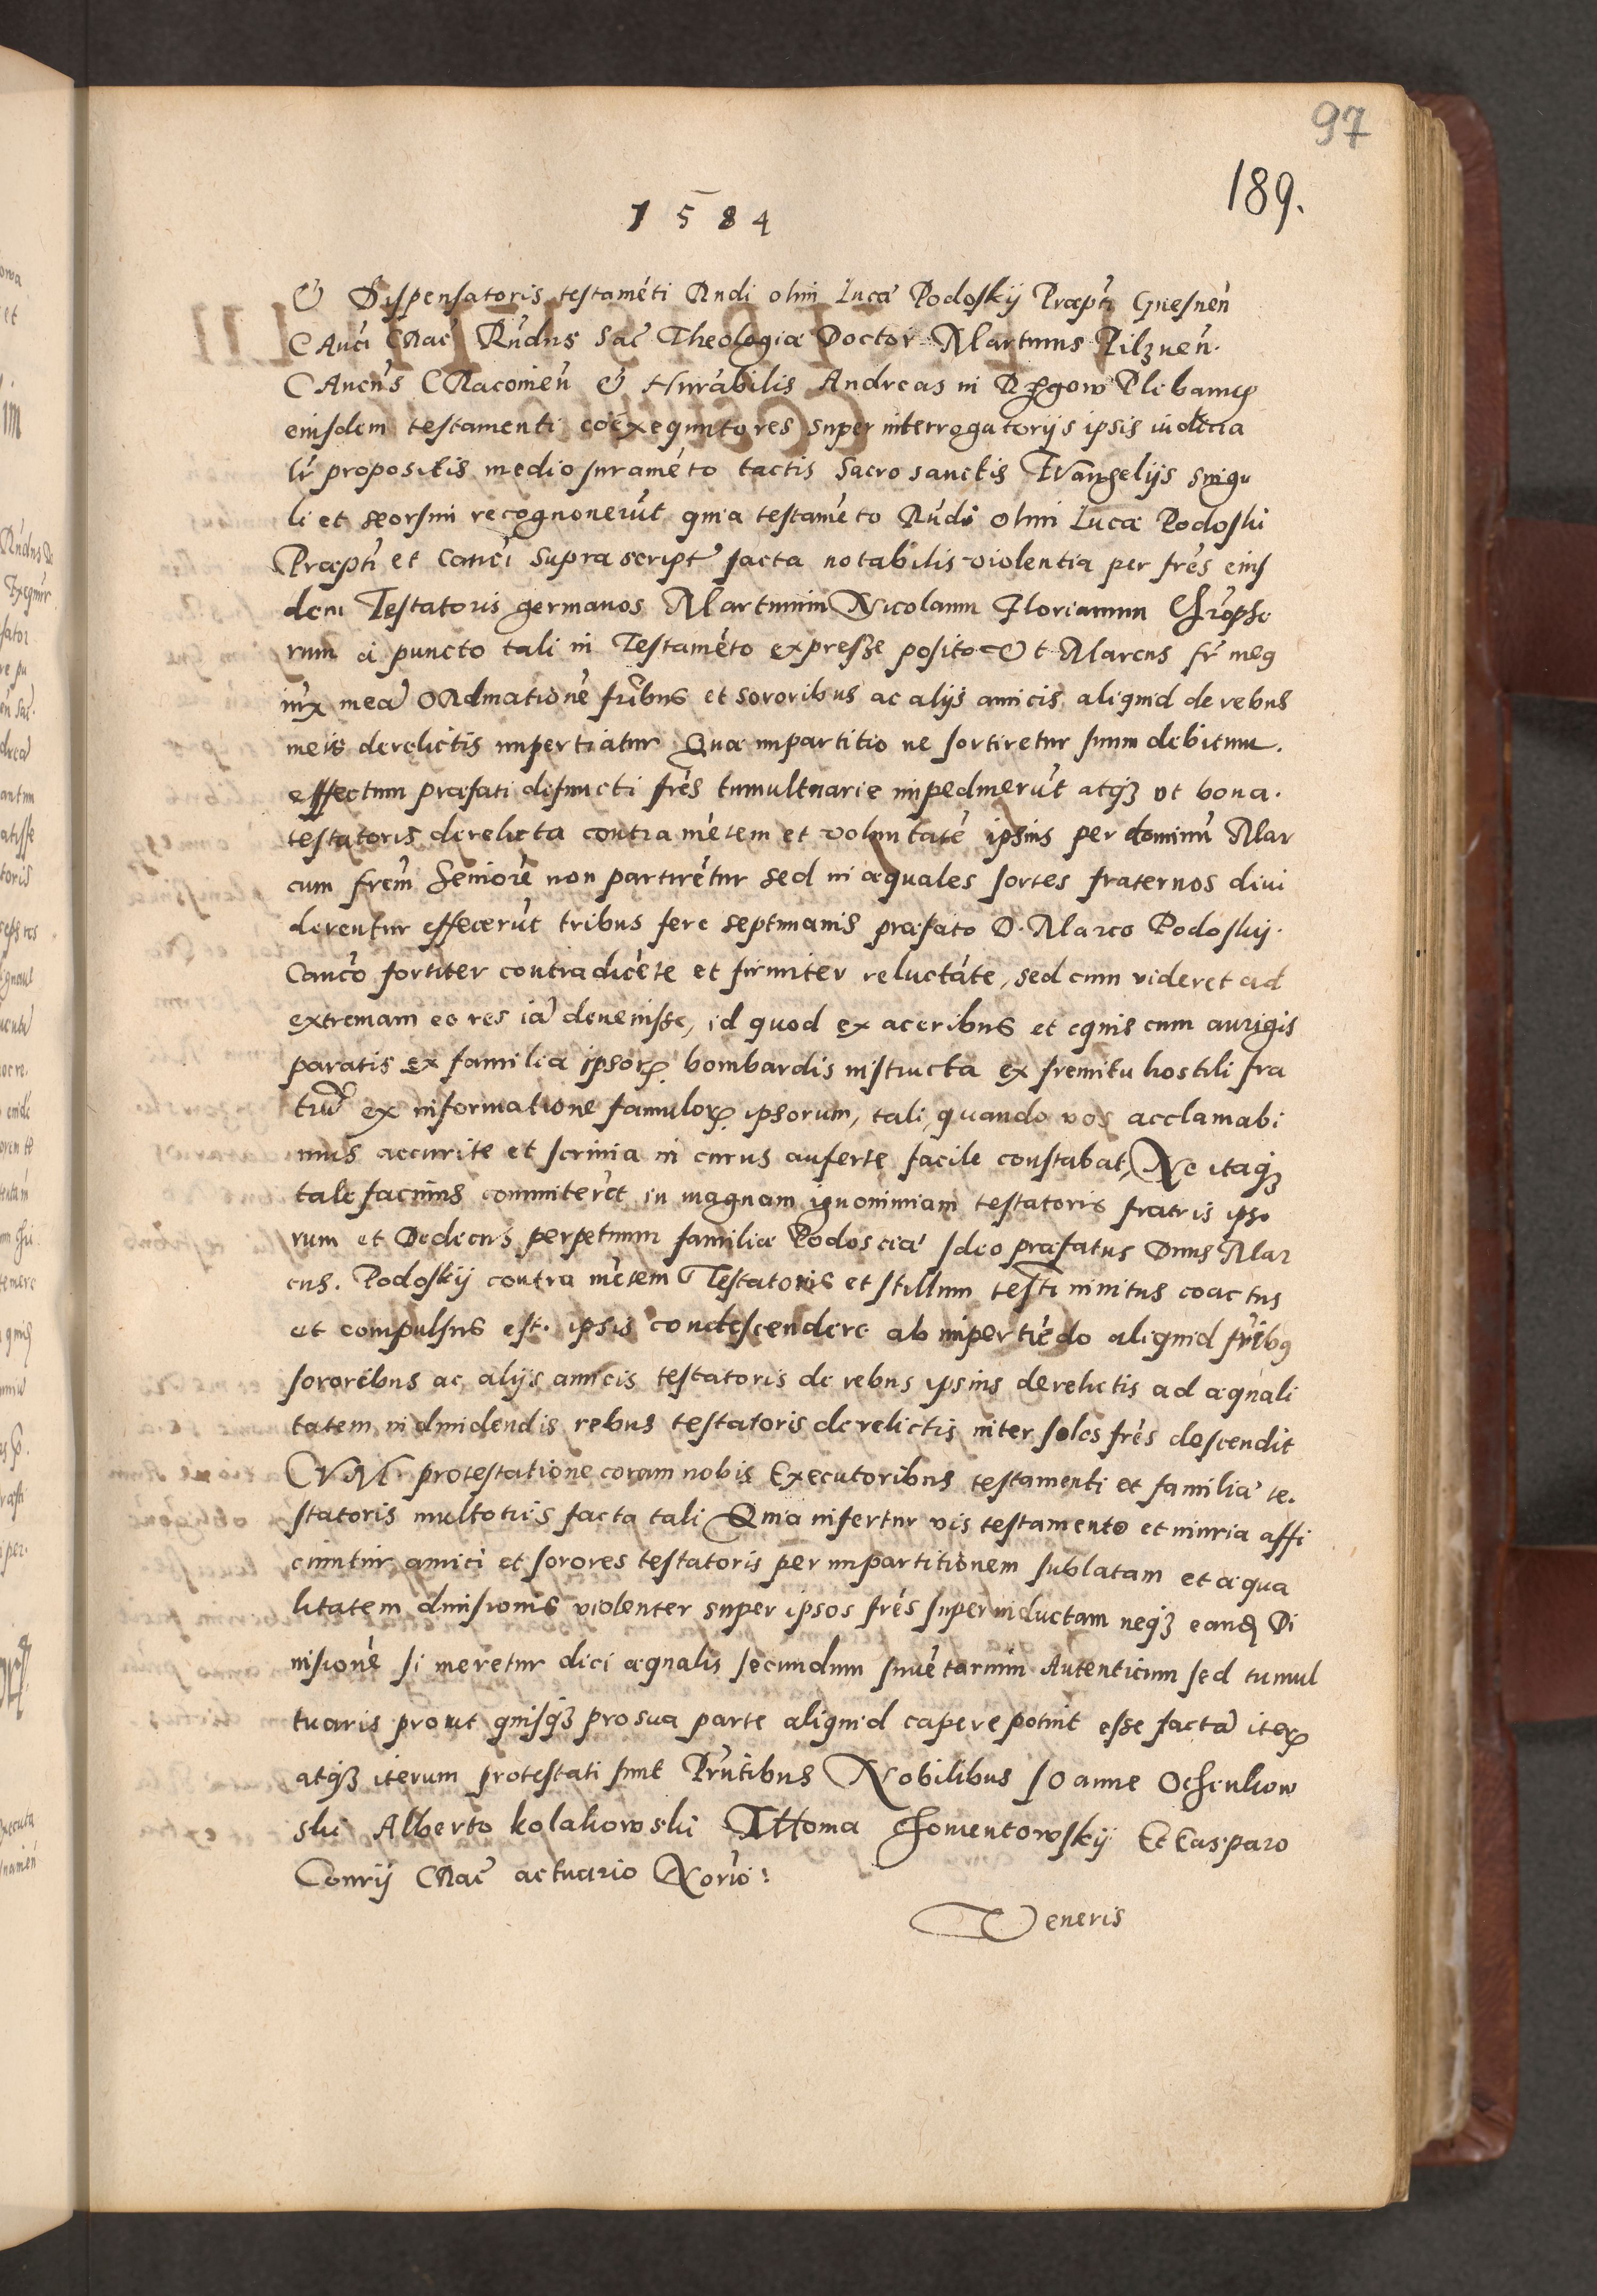 97
189.
1584
& Dispensatoris testamēti Rndi olim Lucæ Podoskij Præpti Gnesnēn
CAnci CRac̄ Rndus Sac̄ Theologiæ Doctor Martinus Pilznēn.
CAncus CRacouieñ & Hnrabilis Andreas in Rzgow Plebanus
eiusdem testamenti coexequutores super interrogatorijs ipsis iudicia
lr propositis medio iuramēto tactis Sacrosanctis Evangelijs singu
li et seorsim recognouerūt quia testamēto Rndi olim Lucæ Podoski
Præpti et Canci supra script facta notabilis violentia per frēs eius
dem Testatoris germanos Martinum Nicolaum Florianum Chrōpho
rum a puncto tali in Testamēto expresse posito Vt Marcus fr meus
iux meā Ordinationē fribus et sororibus ac alijs amicis aliquid de rebus
meis derelictis impertiatur Quæ impartitio ne sortiretur suum debitum.
effectum præfati defuncti frēs tumultuarie impediuerūt atq3 vt bona.
testatoris derelicta contra mētem et voluntatē ipsius per dominū Mar
cum frēm Seniorē non partirētur sed in æquales sortes fraternos diui
derentur effecerūt tribus fere septimanis præfato D. Marco Podoskij.
Canco fortiter contradicēte et firmiter reluctāte, sed cum videret ad
extremam eo res iā deuenisse, id quod ex aceribus et equis cum aurigis
paratis ex familia ipsor bombardis instructa ex fremitu hostili fra
trū ex informatione famulor ipsorum, tali, quando vos acclamabi
mus accurite et scrinia in currus auferte facile constabat, Ne itaq3
tale facinus committeret in magnam ignominiam testatoris fratris ipso
rum et Dedecus perpetuum familiæ Podosciā Ideo præfatus Dnus Mar
cus. Podoskij contra mētem Testatoris et stillum testi inuitus coactus
et compulsus est. ipsis condescendere ab impertiēdo aliquid fribus
sororibus ac alijs amicis testatoris de rebus ipsius derelictis ad æquali
tatem in diuidendis rebus testatoris derelictis inter solos frēs descendit
CVM protestatione coram nobis Executoribus testamenti et familiā te.
statoris multoties facta tali Quia infertur vis testamento et iniuria affi
ciuntur amici et sorores testatoris per impartitionem sublatam et æqua
litatem diuisionis violenter super ipsos frēs superinductam neq3 eand Di
uisionē si meretur dici æqualis secundum inuētarium Autenticum sed tumul
tuaris prout quisq3 pro sua parte aliquid capere potuit esse factā iter
atq3 iterum protestati sunt Prntibus Nobilibus Ioanne Ochenkow
ski Alberto kolakowski THoma Chomentowskij Et Casparo
Conrij CRac̄ actuario Norio:
Veneris